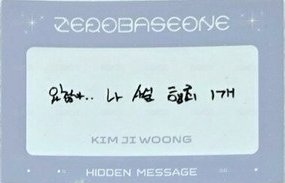 ZEROBASEONE
나 썰 1개
KIM JI WOONG
HIDDEN MESSAGE